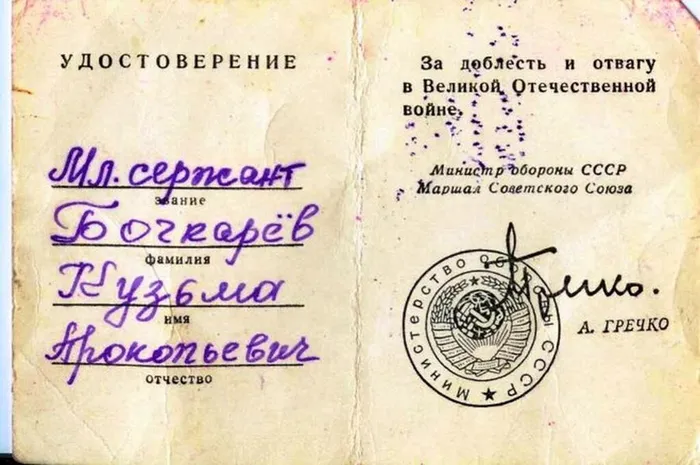 УДОСТОВЕРЕНИЕ
Мл. сержант
звание
Бочкарёв
фамилия
Кузьма
имя
Прокопьевич
отчество
За доблесть и отвагу
в Великой Отечественной
войне.
Министр обороны СССР
Маршал Советского Союза
Гречко.
А. ГРЕЧКО
МИНИСТЕРСТВО ОБОРОНЫ СССР